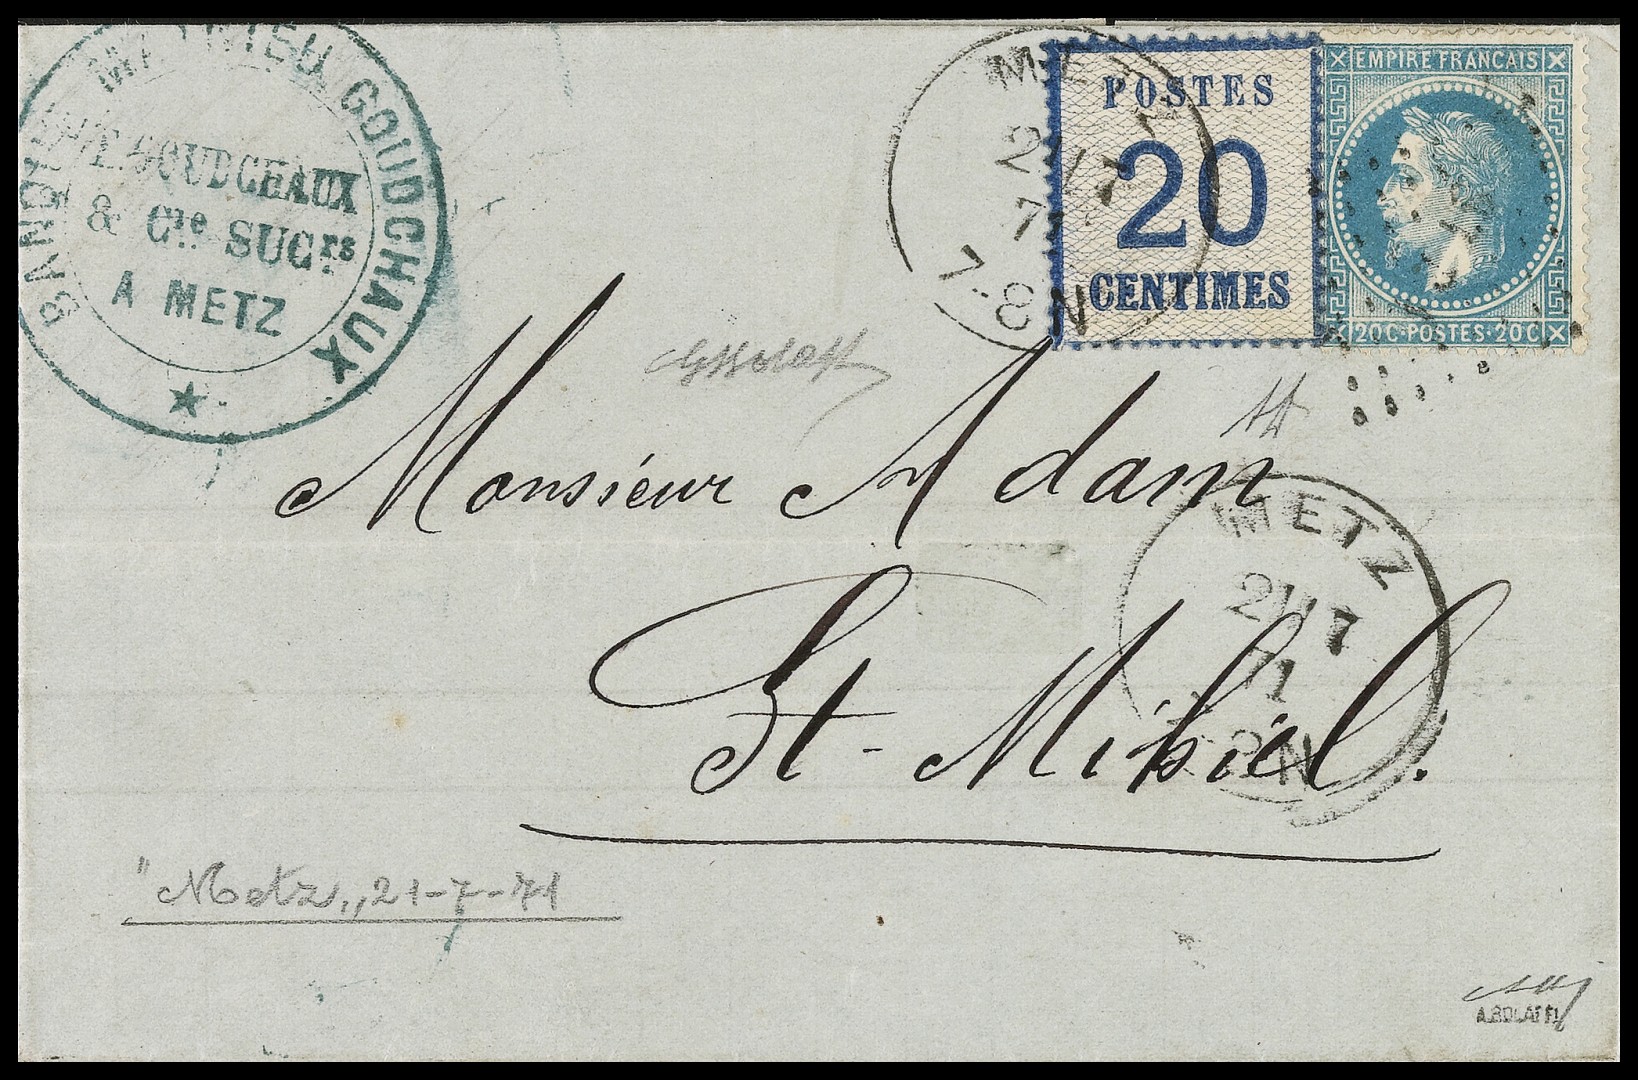 BANQUE MAYER GOUDCHAUX
GOUDCHAUX
& Cie SUCrs
A METZ
POSTES
20
CENTIMES
EMPIRE FRANCAIS
20C·POSTES·20C
21 7
71
7-8 N
Monsieur Adam
St-Mihiel.
METZ
21 7
71
8 N
"Metz,, 21-7-71
A. BOLAFFI